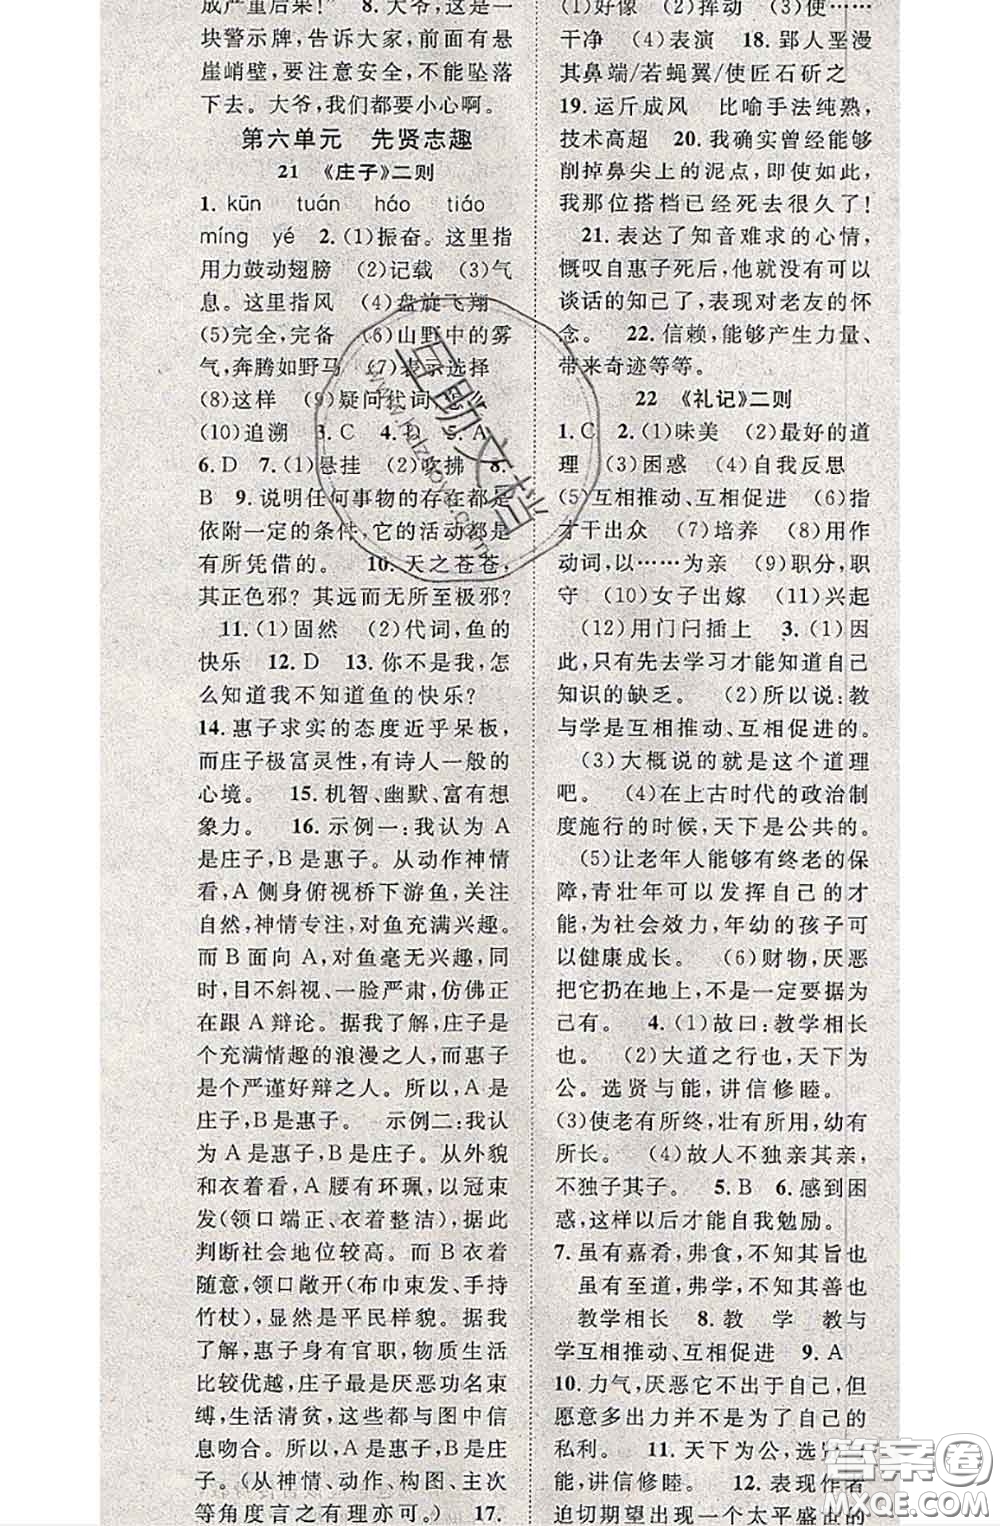 成产重后果！　8. 大爷，这里是一
块警示牌，告诉大家，前面有悬
崖峭壁，要注意安全，不能坠落
下去。大爷，我们都要小心啊。
第六单元　先贤志趣
21　《庄子》二则
1. kūn　tuán　háo　tiáo
míng　yé　2.(1)振奋。这里指
用力鼓动翅膀　(2)记载　(3)气
息。这里指风　(4)盘旋飞翔
(5)完全，完备　(6)山野中的雾
气，奔腾如野马　(7)表示选择
(8)这样　(9)疑问代词，怎么
(10)追溯　3. C　4. D　5. A
6. D　7.(1)悬挂　(2)吹拂　8.
B　9. 说明任何事物的存在都是
依附一定的条件，它的活动都是
有所凭借的。　10. 天之苍苍，
其正色邪？其远而无所至极邪？
11.(1)固然　(2)代词，鱼的
快乐　12. D　13. 你不是我，怎
么知道我不知道鱼的快乐？
14. 惠子求实的态度近乎呆板，
而庄子极富灵性，有诗人一般的
心境。　15. 机智、幽默、富有想
象力。　16. 示例一：我认为 A
是庄子，B 是惠子。从动作神情
看，A 侧身俯视桥下游鱼，关注
自然，神情专注，对鱼充满兴趣。
而 B 面向 A，对鱼毫无兴趣，同
时，目不斜视、一脸严肃，仿佛正
在跟 A 辩论。据我了解，庄子是
个充满情趣的浪漫之人，而惠子
是个严谨好辩之人。所以，A 是
庄子，B 是惠子。　示例二：我认
为 A 是惠子，B 是庄子。从外貌
和衣着看，A 腰有环珮，以冠束
发(领口端正、衣着整洁)，据此
判断社会地位较高。而 B 衣着
随意，领口敞开(布巾束发、手持
竹杖)，显然是平民样貌。据我
了解，惠子身有官职，物质生活
比较优越，庄子最是厌恶功名束
缚，生活清贫，这些都与图中信
息吻合。所以，A 是惠子，B 是庄
子。(从神情、动作、构图、主次
等角度言之有理亦可。)　17.
(1)好像　(2)挥动　(3)使……
干净　(4)表演　18. 郢人垩漫
其鼻端/若蝇翼/使匠石斫之
19. 运斤成风　比喻手法纯熟，
技术高超　20. 我确实曾经能够
削掉鼻尖上的泥点，即使如此，
我那位搭档已经死去很久了！
21. 表达了知音难求的心情，
慨叹自惠子死后，他就没有可以
谈话的知己了，表现对老友的怀
念。　22. 信赖，能够产生力量、
带来奇迹等等。
22　《礼记》二则
1. C　2.(1)味美　(2)最好的道
理　(3)困惑　(4)自我反思
(5)互相推动、互相促进　(6)指
才干出众　(7)培养　(8)用作
动词，以……为亲　(9)职分，职
守　(10)女子出嫁　(11)兴起
(12)用门闩插上　3.(1)因
此，只有先去学习才能知道自己
知识的缺乏。　(2)所以说：教
与学是互相推动、互相促进的。
(3)大概说的就是这个道理
吧。　(4)在上古时代的政治制
度施行的时候，天下是公共的。
(5)让老年人能够有终老的保
障，青壮年可以发挥自己的才
能，为社会效力，年幼的孩子可
以健康成长。　(6)财物，厌恶
把它扔在地上，不是一定要据为
己有。　4.(1)故曰：教学相长
也。　(2)大道之行也，天下为
公。选贤与能，讲信修睦。
(3)使老有所终，壮有所用，幼有
所长。　(4)故人不独亲其亲，
不独子其子。　5. B　6. 感到困
惑，这样以后才能自我勉励。
7. 虽有嘉肴，弗食，不知其旨也
虽有至道，弗学，不知其善也
教学相长　8. 教　学　教与
学互相推动、互相促进　9. A
10. 力气，厌恶它不出于自己，但
愿意多出力并不是为了自己的
私利。　11. 天下为公，选贤与
能，讲信修睦。　12. 表现作者
迫切期望出现一个太平盛世的
互助文档
答案圈
MXQE.COM